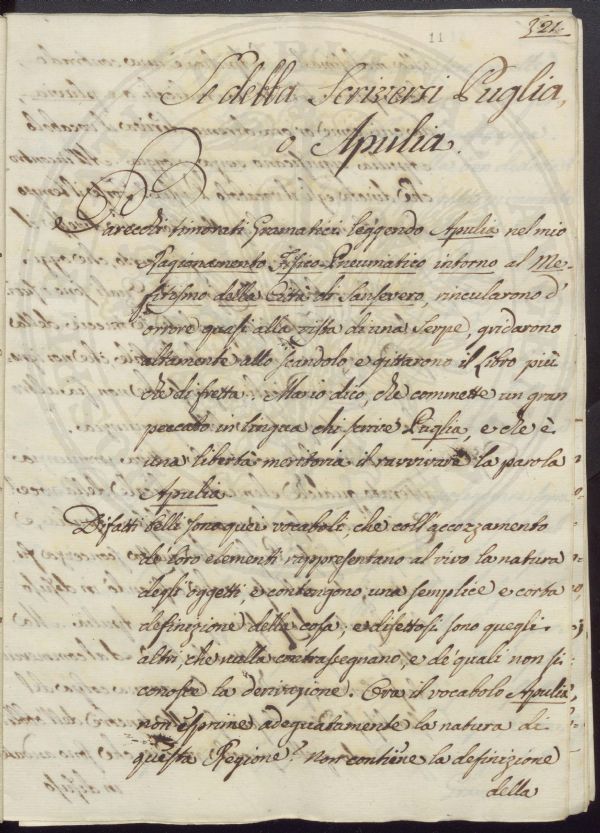 11
321
Se debba scriversi Puglia,
o Apulia.
Parecchi timorati Gramatici leggendo Apulia nel mio
Ragionamento Fisico-Pneumatico intorno al Me-
fitismo della Città di Sansevero, rincularono d'
orrore quasi alla vista di una Serpe, gridarono
altamente allo scandolo e gittarono il Libro più
che di fretta. Ma io dico, che commette un gran
peccato in lingua chi scrive Puglia, e che è
una libertà meritoria il ravvivare la parola
Apulia.
Difatti belli sono quei vocaboli, che coll'accozzamento
de' loro elementi rappresentano al vivo la natura
degli oggetti e contengono una semplice e corta
definizione della cosa; e difettosi sono quegli
altri, che nulla contrassegnano, e de' quali non si
conosce la derivazione. Ora il vocabolo Apulia
non esprime adeguatamente la natura di
questa Regione? non contiene la definizione
della